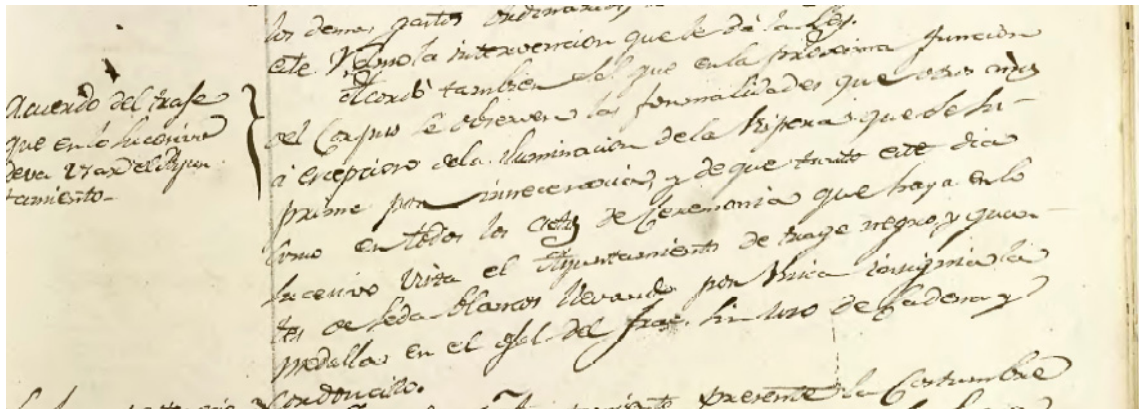 Acuerdo del trage
que en lo sucesivo
deva Usar el Ayun
tamiento-
los demas gastos ordinarios
este Ramo la intervencion que le dé la Ley.
Acordó tambien el que en la procsima funcion
del Corpus se observen las formalidades que otros años
á excepcion de la iluminacion de la Vispera, que se su-
prime por innecesaria, y de que tanto este dia
como en todos los actos de Ceremonia que haya en lo
sucesivo Vista el Ayuntamiento de trage negro, y guan-
tes de seda blancos llevando por Unica insignia la
medalla en el ojal del frac, sin uso de Cadena y
Cordoncillo.
presente la Costumbre